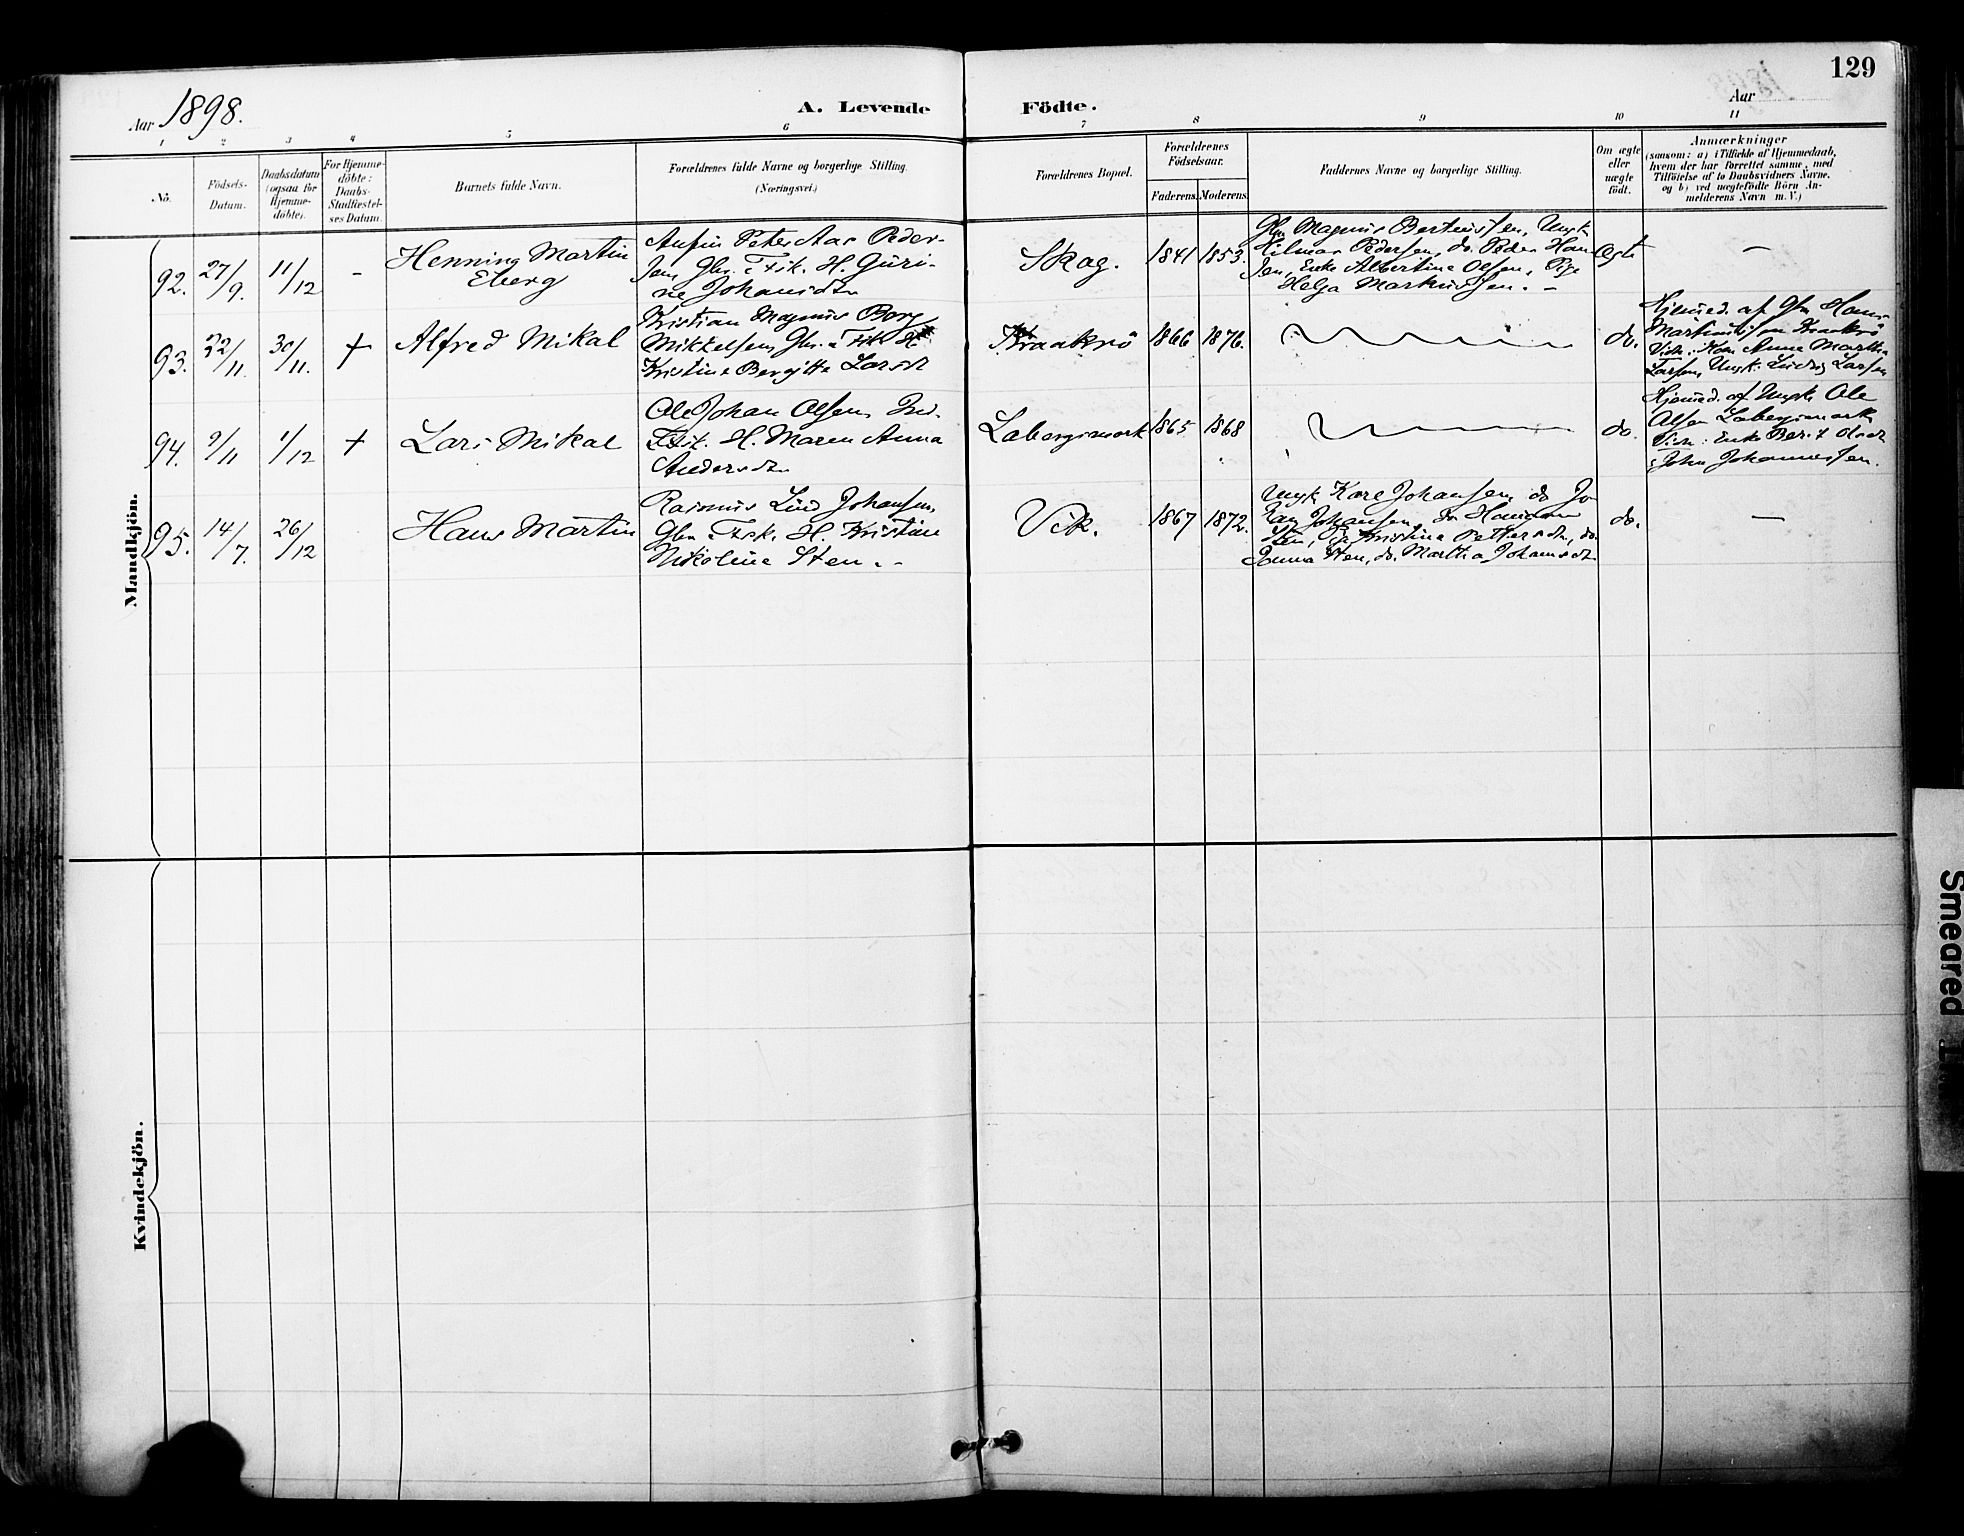 129
Aar 1898.
A. Levende Födte.
Aar
1 2 3 4 5 6 7 8 9 10 11
No.
Födsels-
Datum.
Daabsdatum
(ogsaa for
Hjemme-
döbte).
For Hjemme-
döbte:
Daabs-
Stadfæstel-
ses Datum.
Barnets fulde Navn.
Forældrenes fulde Navne og borgerlige Stilling.
(Næringsvei.)
Forældrenes Bopæl.
Forældrenes
Födselsaar.
Faderens. Moderens.
Faddernes Navne og borgerlige Stilling.
Om ægte
eller
uægte
födt.
Anmærkninger
(saasom: a) i Tilfælde af Hjemmedaab,
hvem der har forrettet samme, med
Tilföielse af to Daabsvidners Navne,
og b) ved uægtefödte Börn An-
melderens Navn m. V.)
Mandkjön.
92. 27/9. 11/12 -
Henning Martin
Eberg
Anfin Peter Aas Peder-
sen, Gbr. & Fisk. H. Guri-
ne Johansdtr
Skag.
1841 1853.
Gbr Magnus Berteussen, Ungk
Hilmar Pedersen, do. Peder Han
sen, Enke Albertine Olsen, Pige
Helga Markussen. -
Ægte
—
93. 22/11. 30/11. +
Alfred Mikal
Kristian Magnus Berg
Mikkelsen, Gbr. & Fisk H.
Kristine Bergitte Larsdt
Kraakrö
1866 1876.
do.
Hjemmed. af Gbr Hans
Martinussen Kraakrö
Vidn: Kone Anne Martha
Larsen, Ungk. Ludvig Larsen
94. 9/11 1/12 +
Lars Mikal
Ole Johan Olsen, Ind.
Fisk. H. Maren Anna
Andersdtr
Labergsmark
1865 1868
do.
Hjemmed. af Ungk Ole
Olsen Labergsmark
Vidn: Enke Berit
& John Johannessen.
95. 14/7. 26/12
Hans Martin
Rasmus Lind Johansen,
Gbr & Fisk. H. Kristine
Nikoline Sten. -
Vik.
1867 1872.
Ungk Kore Johansen, do Jo
Johansen, do
Sten, Kristine Pettersdtr, do.
Anna Sten, do. Martha Johansdtr
do.
—
Kvindekjön.
Smeared